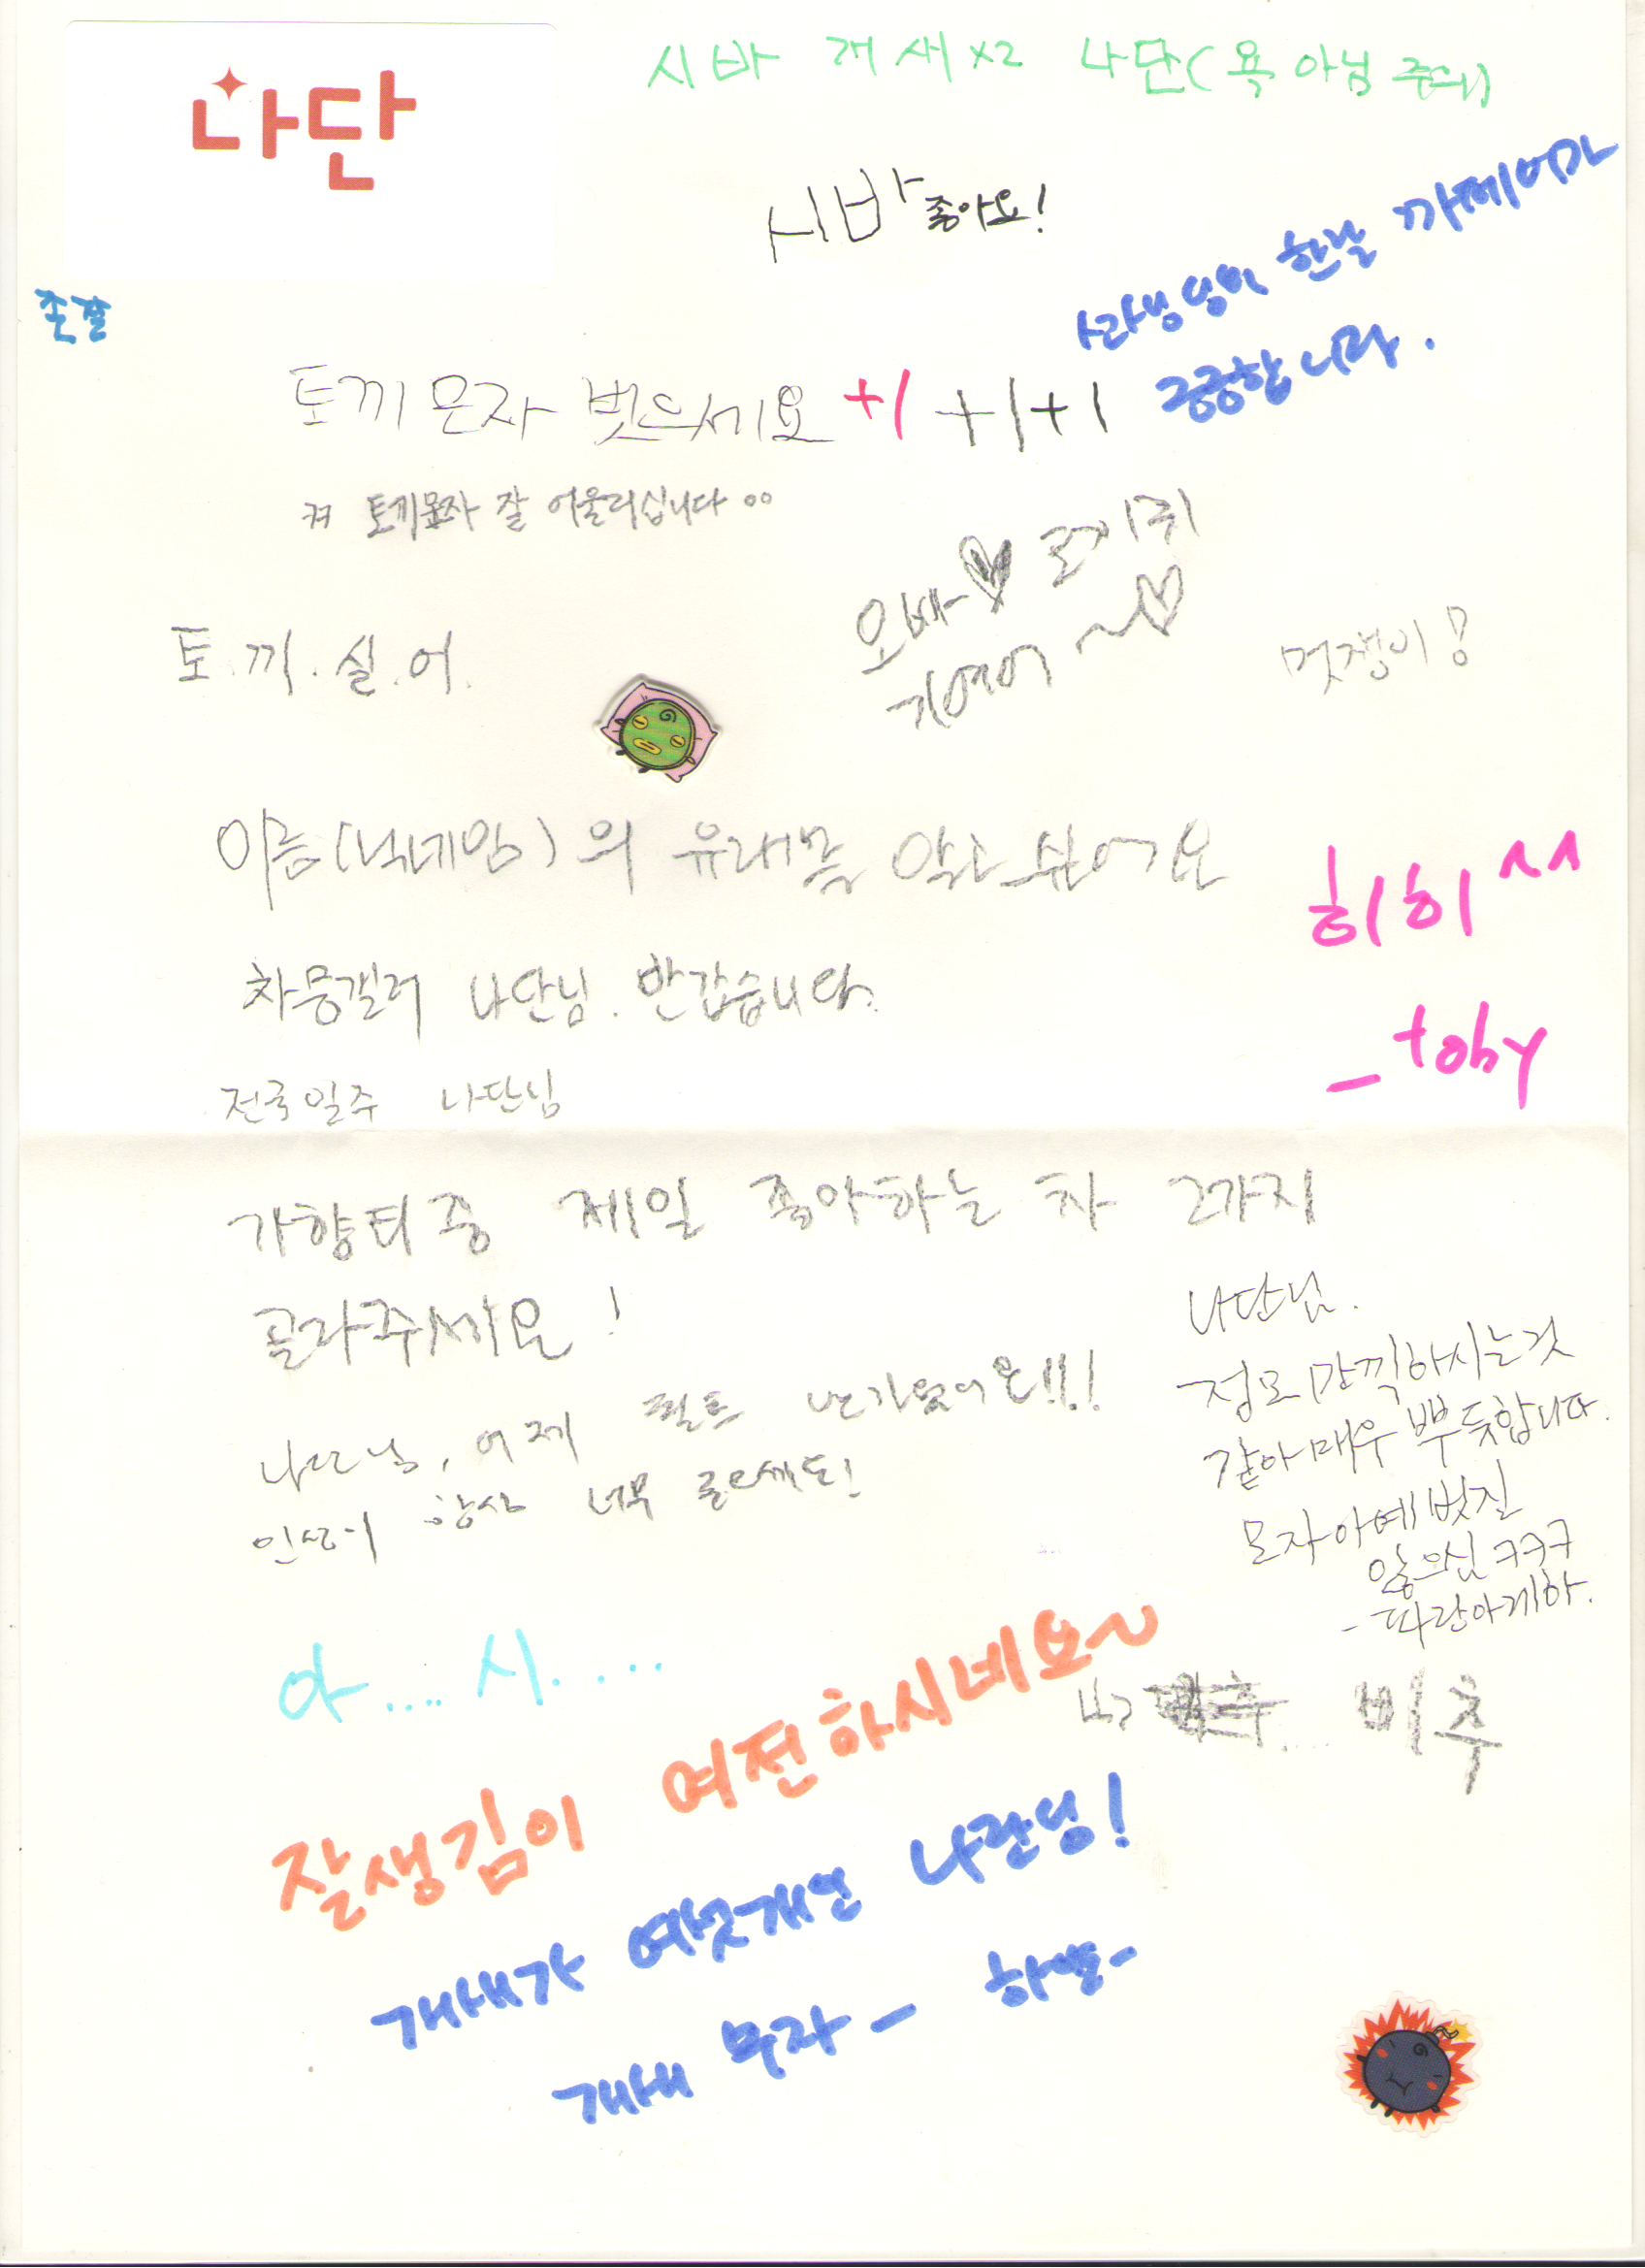 나단
시바 개새 x2 나단(욕 아님 주의)
시바 좋아요!
존잘
사장님이 한날 까페어가
궁금합니다.
토끼모자 벗으세요 +1 +1 +1
ㄴ 토끼모자 잘 어울리십니다 ㅇㅇ
토.끼.싫.어.
오빠♡
귀여어~♡
멋쟁이!
이름(닉네임)의 유래를 알고 싶어요
히히^^
_toby
차믕갤러 나단님. 반갑습니다.
전국일주 나단님
가향티중 제일 좋아하는 차 2가지
골라주세요!
나단님, 어제
항상 너무
나단님.
정모 만끽하시는것
같아 매우 뿌듯합니다.
모자 아예 벗질
않으심 ㅋㅋㅋ
-파랑아게하.
아....시....
비추
잘생김이 여전하시네요~
개새가 여섯개인 나단님!
개새 부자 -